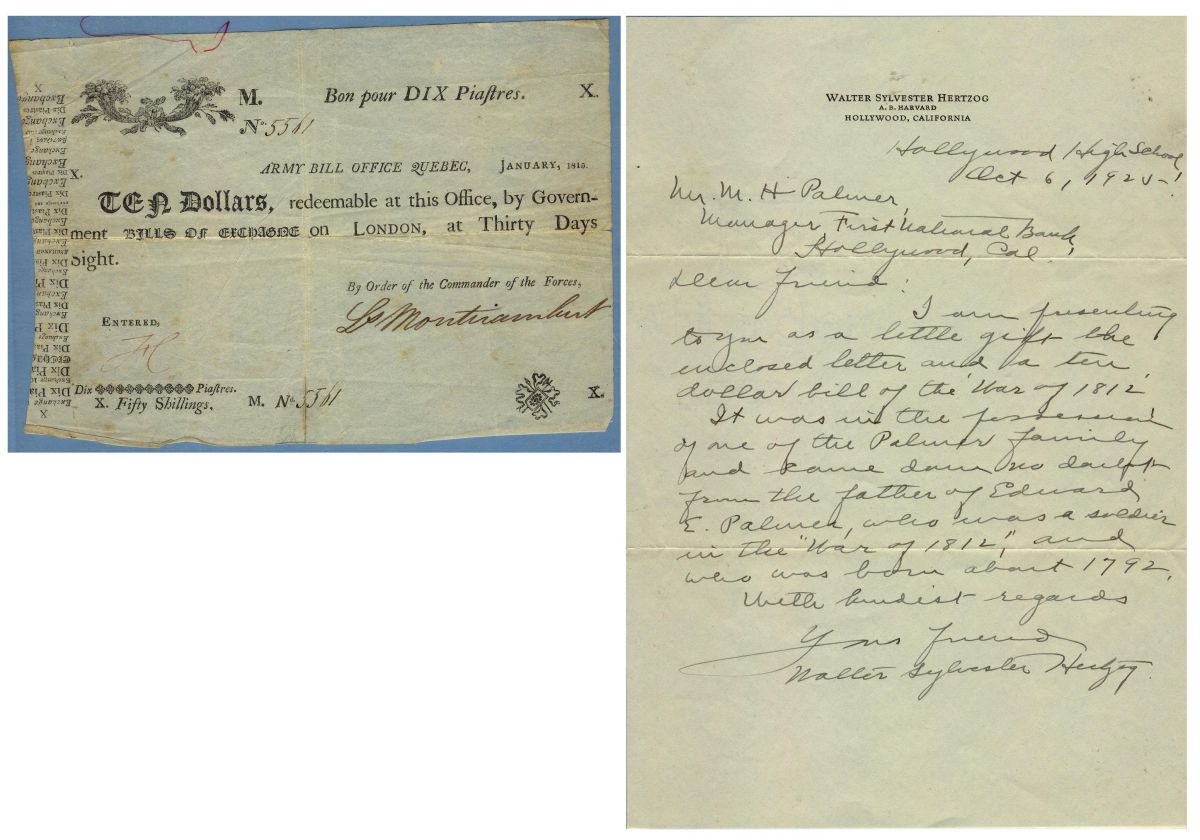 M. Bon pour DIX Piaſtres. X.
No. 5561
ARMY BILL OFFICE QUEBEC, JANUARY, 1815.
X.
TEN Dollars, redeemable at this Office, by Govern-
ment BILLS OF EXCHAGNE on LONDON, at Thirty Days
Sight.
By Order of the Commander of the Forces,
Ls Montizambert
ENTERED,
Dix Piaſtres.
X. Fifty Shillings. M. No. 5561 X.
X
Exchange
Dix Piaſtres
Exchange
Dix Piaſtres
Exchange
X
WALTER SYLVESTER HERTZOG
A. B. HARVARD
HOLLYWOOD, CALIFORNIA
Hollywood High School,
Oct 6, 1925-
Mr. M. H Palmer,
Manager First National Bank,
Hollywood, Cal.
Dear Friend:
I am presenting
to you as a little gift the
enclosed letter and a ten
dollar bill of the War of 1812
It was in the possession
of one of the Palmer family
and came down no doubt
from the father of Edward
E. Palmer, who was a soldier
in the "War of 1812," and
who was born about 1792.
With kindest regards
Your friend
Walter Sylvester Hertzog.